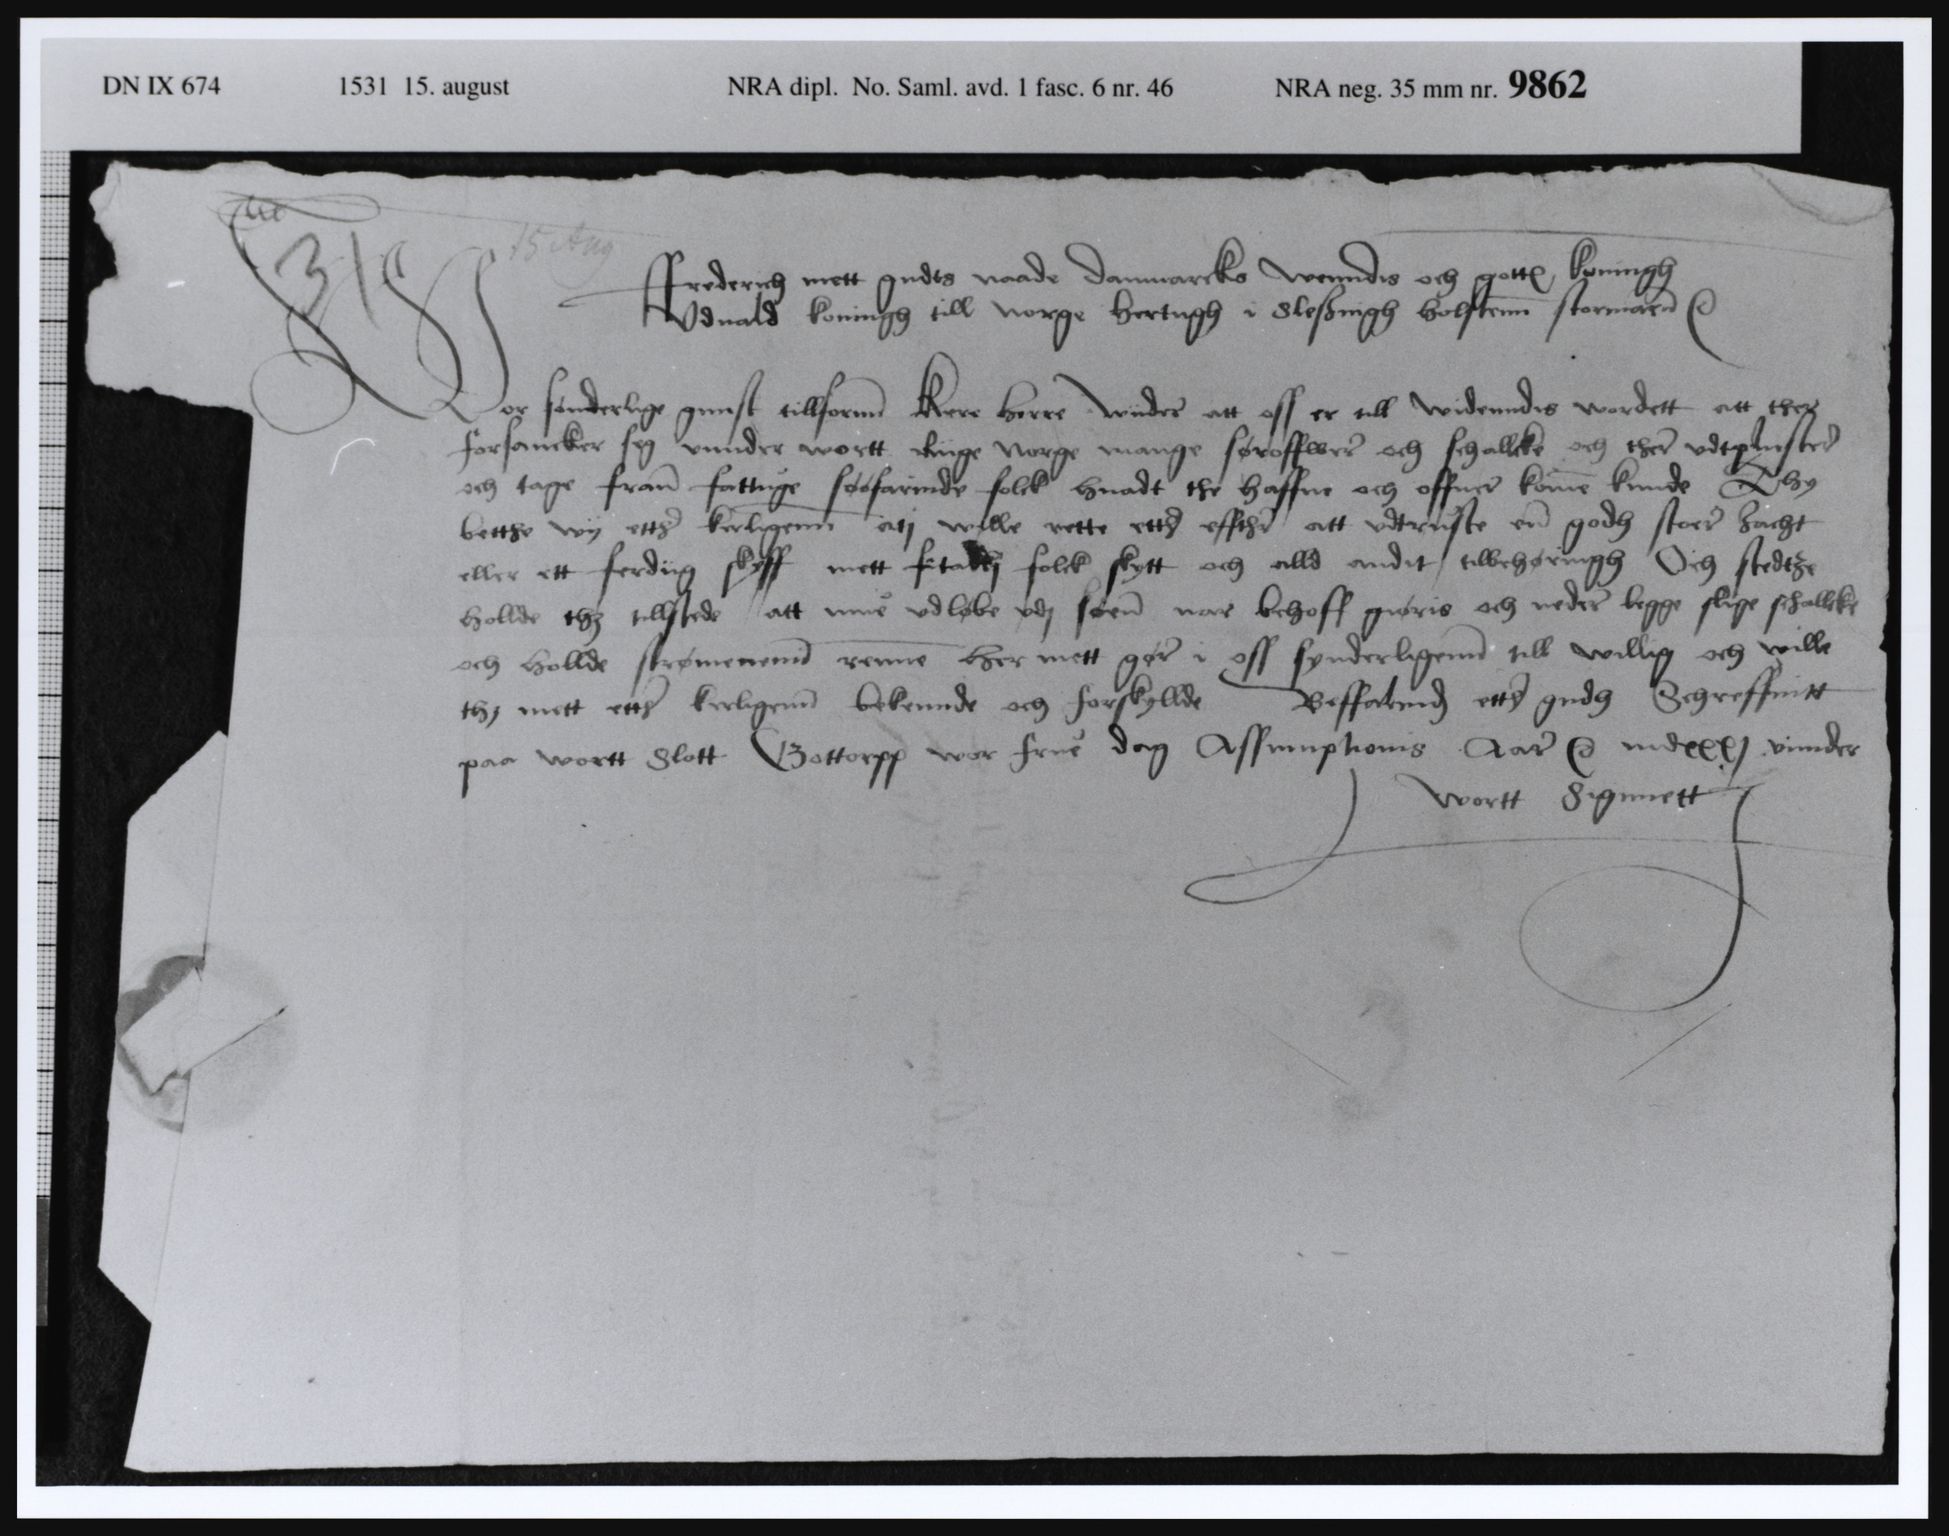 DN IX 674 1531 15. august NRA dipl. No. Saml. avd. 1 fasc. 6 nr. 46 NRA neg. 35 mm nr. 9862
31 15 Aug
Ffrederich mett gudts naade Danmarcks Wenndis och gotts koningh
Vduald koningh till Norge Hertugh i Sleßuigh Holstenn Stormarn
Wor sønderlige gunst tillfornn Kere Herre wiider att oss er till widenndis wordett att ther
forsancker seg vnnder wortt riige Norge mange søroffwer och schallcke och ther vdtpluster
och tage frann fattuge søøfarinde folck huadt the haffue och offuer komme kunde Thy
betthe wij etther kierligenn atj wille rette etther effther att vdtruste en godh stoer Jacht
eller ett ferdiig skyff mett folck skytt och alld andit tilbehøringh Och stedtze
hollde thz tillstede att mue vdløbe vdj søenn nar behoff giøris och neder legge slige schallcke
och hollde strømenenn renne Her mett gør i oss synderligenn till willig och wille
thz mett etther kierligenn bekennde och forskyllde Beffalindz etther gudh Schreffuitt
paa wortt Slott Gottorpp wor frue dag Assumptionis Aar mdxxxj vnnder
wortt Signnett